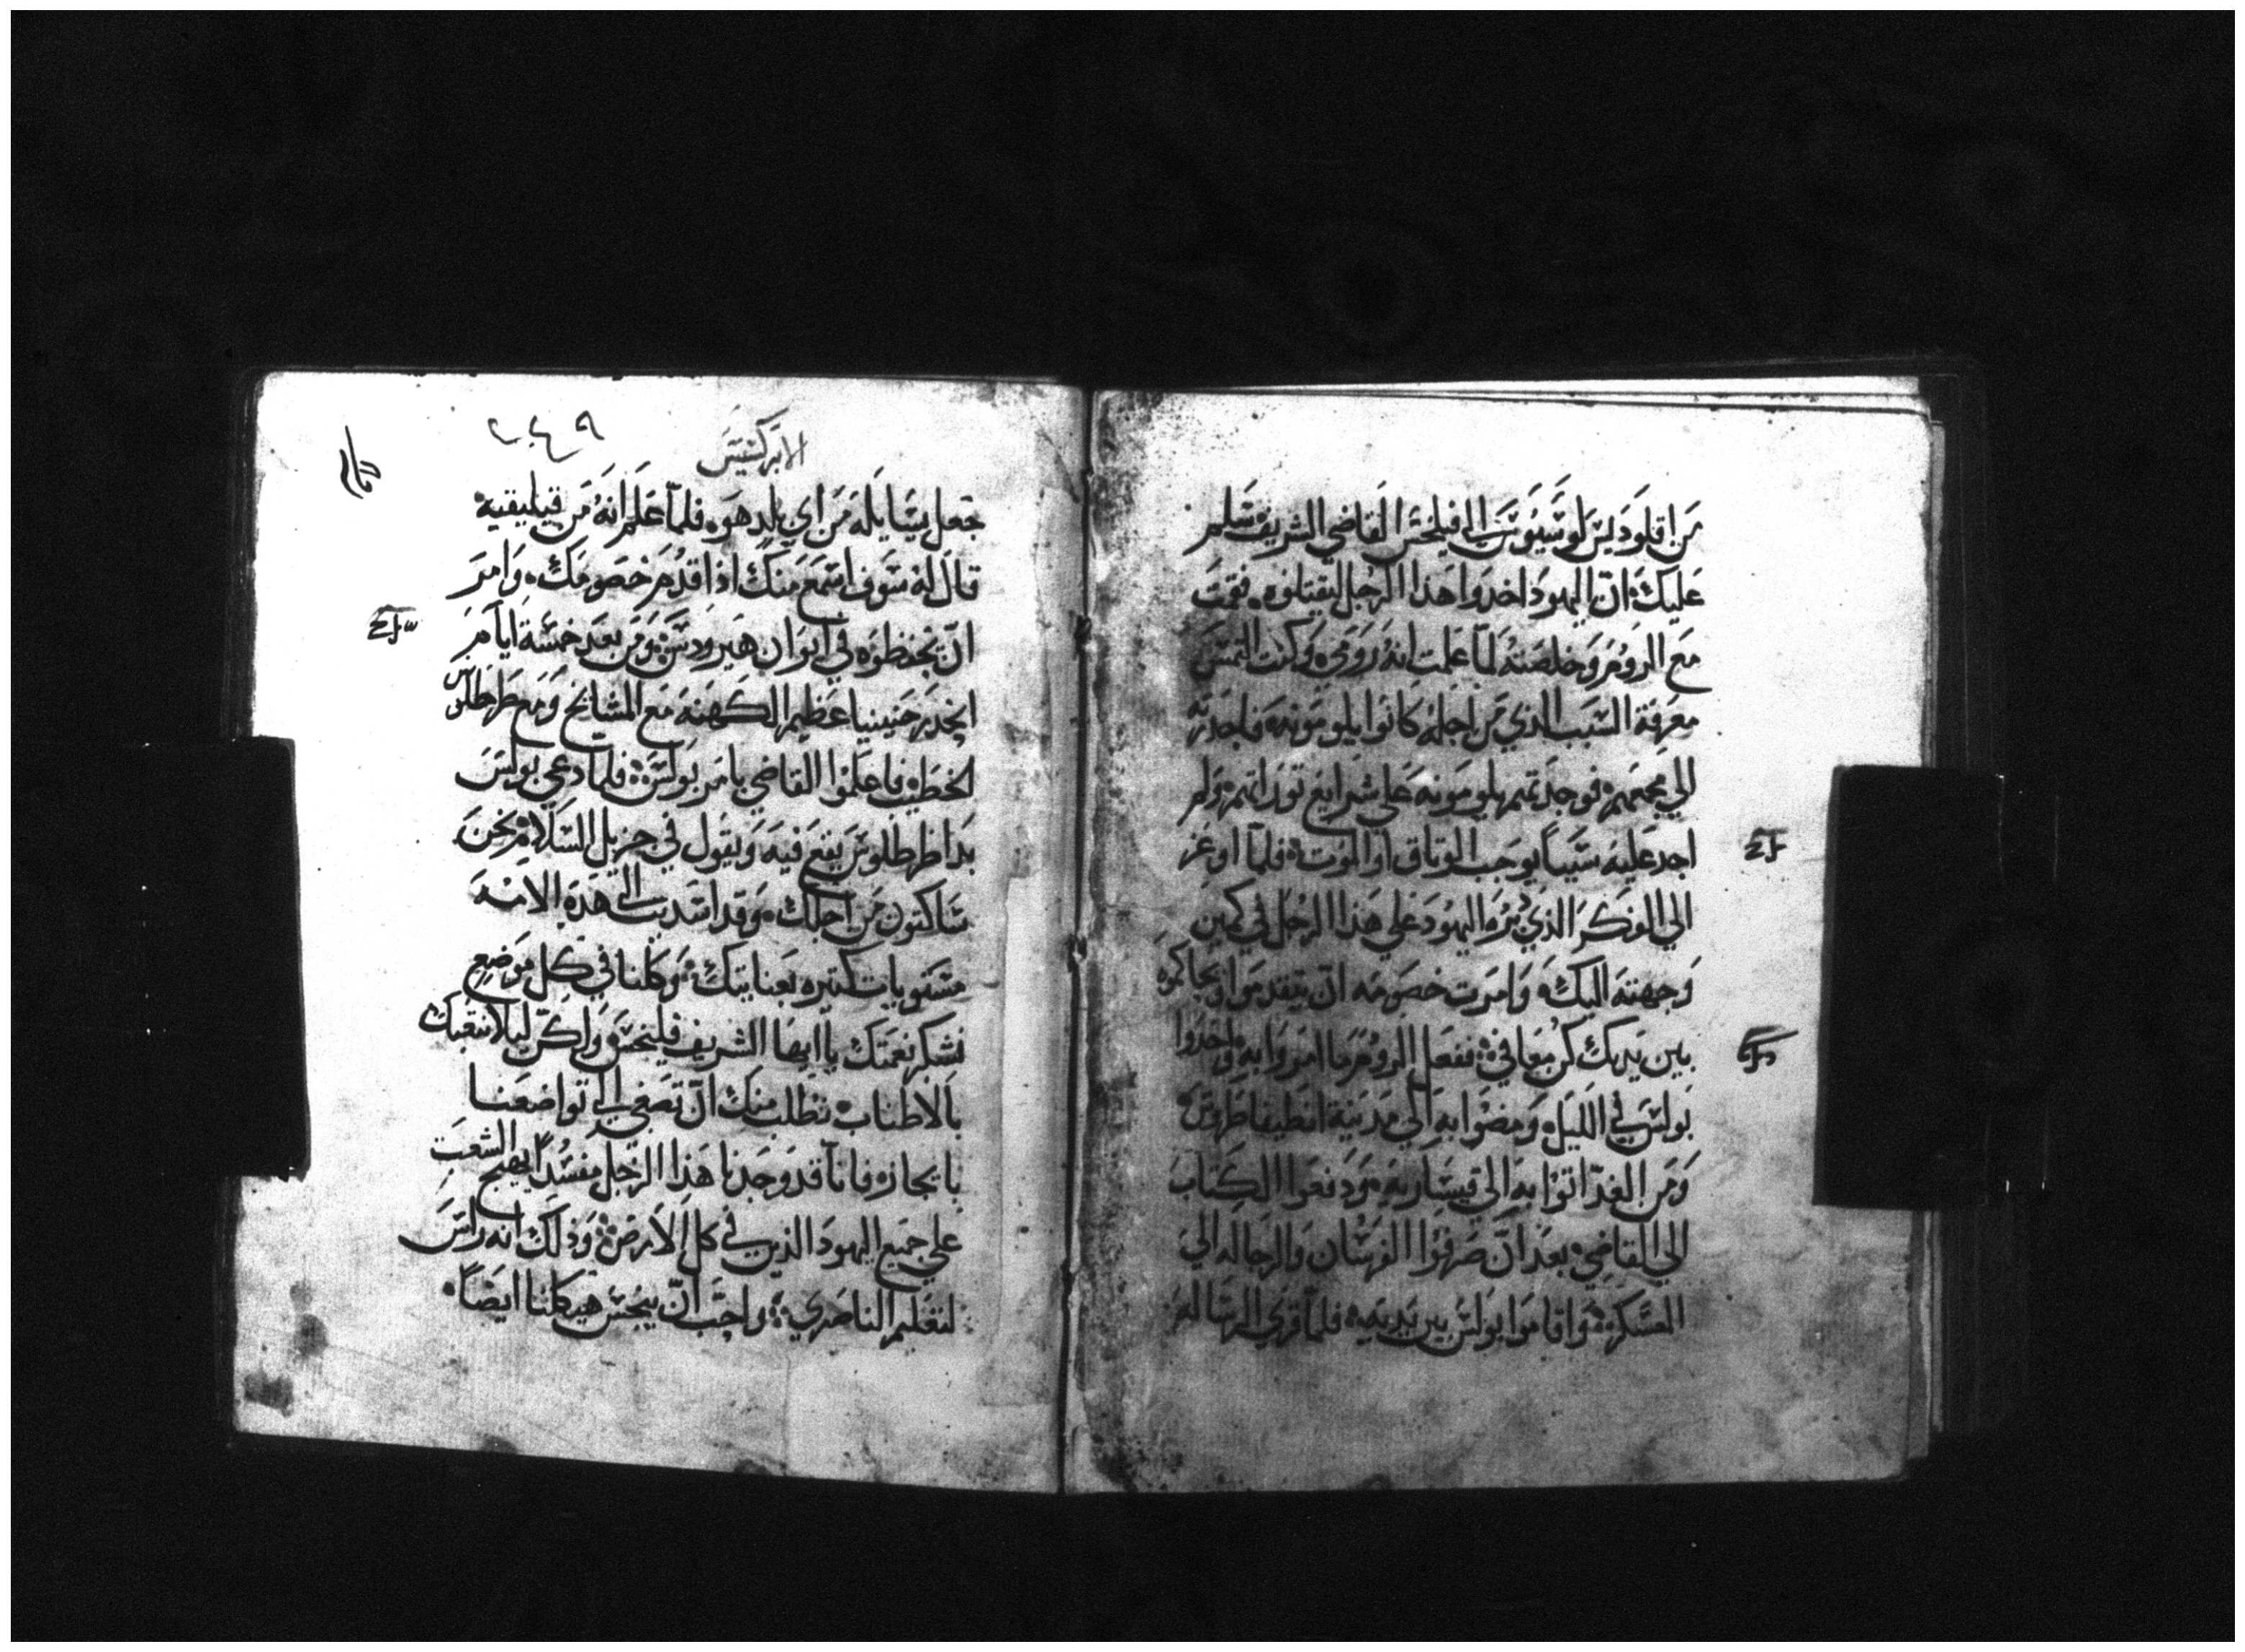 من اقلوديس لوسيوس الي فيلخس القاضي الشريف سلم
عليك ان اليهود اخدوا هذا الرجل ليقتلوه فقمت
مع الروم وخلصته لما علمت انه رومي وكنت التمس
معرفة السبب الذي من اجله كانوا يلومونه فاحدرته
الي مجمعهم فوجدتهم يلومونه علي شرايع توراتهم ولم
اجد عليه سيياً يوجب الوتاق او الموت فلما اوعز
الي المكر الذي اليهود علي هذا الرجل في كمين
وجهته اليك وامرت خصومه ان يتقدموا ويحاكموه
بين يديك كن معافي ففعل الروم ما امروا به واخدوا
بولس في الليل ومضوا به الي مدينة انطيفاطروس
ومن الغد اتوا به الي قيسارية ودفعوا الكتاب
الي القاضي بعد ان صرفوا الفرسان والرجاله الي
العسكر واقاموا بولس بين يديه فلما قري الرساله
الابركسيس
٢٤٩
جعل يسايله من اي بلد هو فلما علم انه من قيليقية
قال له سوف اسمع منك اذا قدم خصومك وامر
ان يحفظوه في ايوان هيرودس ومن بعد خمسة ايام
انحدر حنينيا عظيم الكهنه مع المشايخ ومع طرطلس
الخطيب فاعلموا القاضي بامر بولس فلما دعي بولس
بدا طرطلوس يقع فيه ويقول في جزيل السلامة نحن
ساكنون من اجلك وقد اسديت الي هذه الامه
مستويات كتيره بعنايتك وكلنا في كل موضع
نشكر نعمتك يا ايها الشريف فيلخس ولكن ليلا نتعبك
بالاطناب نطلب منك ان تصغي الي تواضعنا
بايجازه فانا قد وجدنا هذا الرجل مفسداً يهيج الشعب
علي جميع اليهود الذين في كل الارض وذلك انه راس
لتعليم الناصري واحب ان ينجس هيكلنا ايضاً